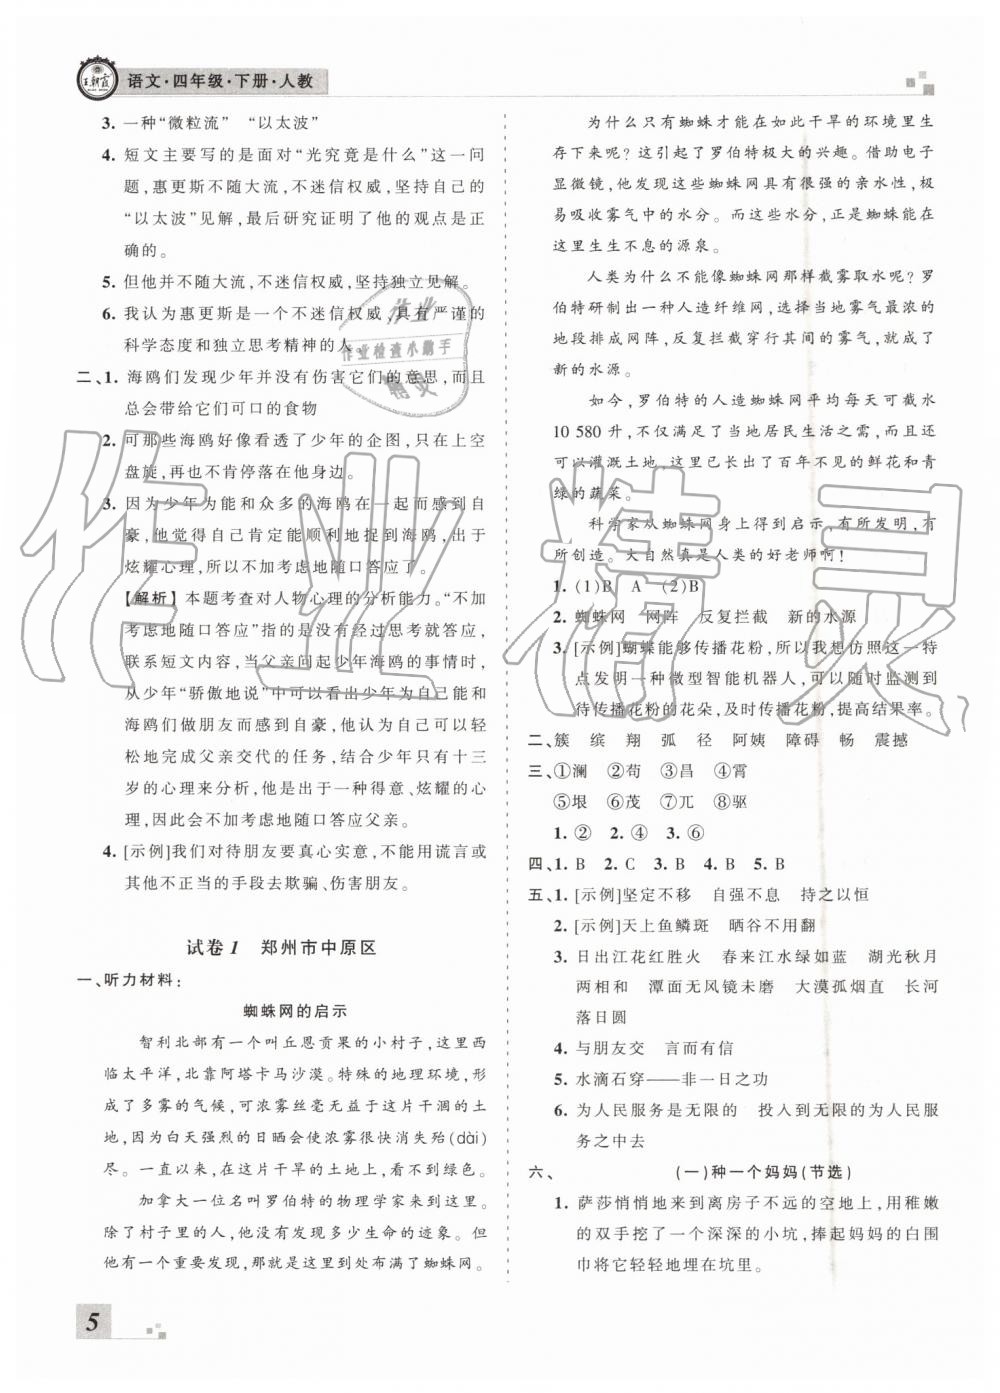 王朝霞
语文·四年级·下册·人教
3. 一种“微粒流” “以太波”
4. 短文主要写的是面对“光究竟是什么”这一问
题,惠更斯不随大流,不迷信权威,坚持自己的
“以太波”见解,最后研究证明了他的观点是正
确的。
5. 但他并不随大流,不迷信权威,坚持独立见解。
6. 我认为惠更斯是一个不迷信权威,具有严谨的
科学态度和独立思考精神的人。
二、1. 海鸥们发现少年并没有伤害它们的意思,而且
总会带给它们可口的食物
2. 可那些海鸥好像看透了少年的企图,只在上空
盘旋,再也不肯停落在他身边。
3. 因为少年为能和众多的海鸥在一起而感到自
豪,他觉得自己肯定能顺利地捉到海鸥,出于
炫耀心理,所以不加考虑地随口答应了。
【解析】本题考查对人物心理的分析能力。“不加
考虑地随口答应”指的是没有经过思考就答应,
联系短文内容,当父亲问起少年海鸥的事情时,
从少年“骄傲地说”中可以看出少年对于能和
海鸥们做朋友而感到自豪,他认为自己可以轻
松地完成父亲交代的任务,结合少年只有十三
岁的心理来分析,他是出于一种得意、炫耀的心
理,因此会不加考虑地随口答应父亲。
4. [示例]我们对待朋友要真心实意,不能用谎言或
其他不正当的手段去欺骗、伤害朋友。
试卷1 郑州市中原区
一、听力材料:
蜘蛛网的启示
智利北部有一个叫丘恩贡果的小村子,这里西
临太平洋,北靠阿塔卡马沙漠。特殊的地理环境,形
成了多雾的气候,可浓雾丝毫无益于这片干涸的土
地,因为白天强烈的日晒会使浓雾很快消失殆(dài)
尽。一直以来,在这片干旱的土地上,看不到绿色。
加拿大一位名叫罗伯特的物理学家来到这里。
除了村子里的人,他没有发现多少生命的迹象。但他
有一个重要发现,那就是这里到处布满了蜘蛛网。
为什么只有蜘蛛才能在如此干旱的环境里生
存下来呢?这引起了罗伯特极大的兴趣。借助电子
显微镜,他发现这些蜘蛛网具有很强的亲水性,极
易吸收雾气中的水分。而这些水分,正是蜘蛛能在
这里生生不息的源泉。
人类为什么不能像蜘蛛网那样截雾取水呢?罗
伯特研制出一种人造纤维网,选择当地雾气最浓的
地段排成网阵,反复拦截穿行其间的雾气,就成了
新的水源。
如今,罗伯特的人造蜘蛛网平均每天可截水
10 580升,不仅满足了当地居民生活之需,而且还
可以灌溉土地,这里长出了百年不见的鲜花和青
绿的蔬菜。
科学家从蜘蛛网身上得到启示,有所发明,有
所创造。大自然真是人类的好老师啊!
1. (1)B A (2)B
2. 蜘蛛网 网阵 反复拦截 新的水源
3. [示例]蝴蝶能够传播花粉,所以我想仿照这一特
点发明一种微型智能机器人,可以随时监测到
待传播花粉的花朵,及时传播花粉,提高结果率。
二、簇 缤 翔 弧 径 阿姨 障碍 畅 震撼
三、①澜 ②苟 ③昌 ④霄
⑤垠 ⑥茂 ⑦兀 ⑧驱
1. ② 2. ④ 3. ⑥
四、1. B 2. C 3. B 4. B 5. B
五、1. [示例]坚定不移 自强不息 持之以恒
2. [示例]天上鱼鳞斑 晒谷不用翻
3. 日出江花红胜火 春来江水绿如蓝 湖光秋月
两相和 潭面无风镜未磨 大漠孤烟直 长河
落日圆
4. 与朋友交 言而有信
5. 水滴石穿——非一日之功
6. 为人民服务是无限的 投入到无限的为人民服
务之中去
六、 (一)种一个妈妈(节选)
1. 萨莎悄悄地来到离房子不远的空地上,用稚嫩
的双手挖了一个深深的小坑,捧起妈妈的白围
巾将它轻轻地埋在坑里。
5
作业
作业检查小助手
精灵
作业精灵